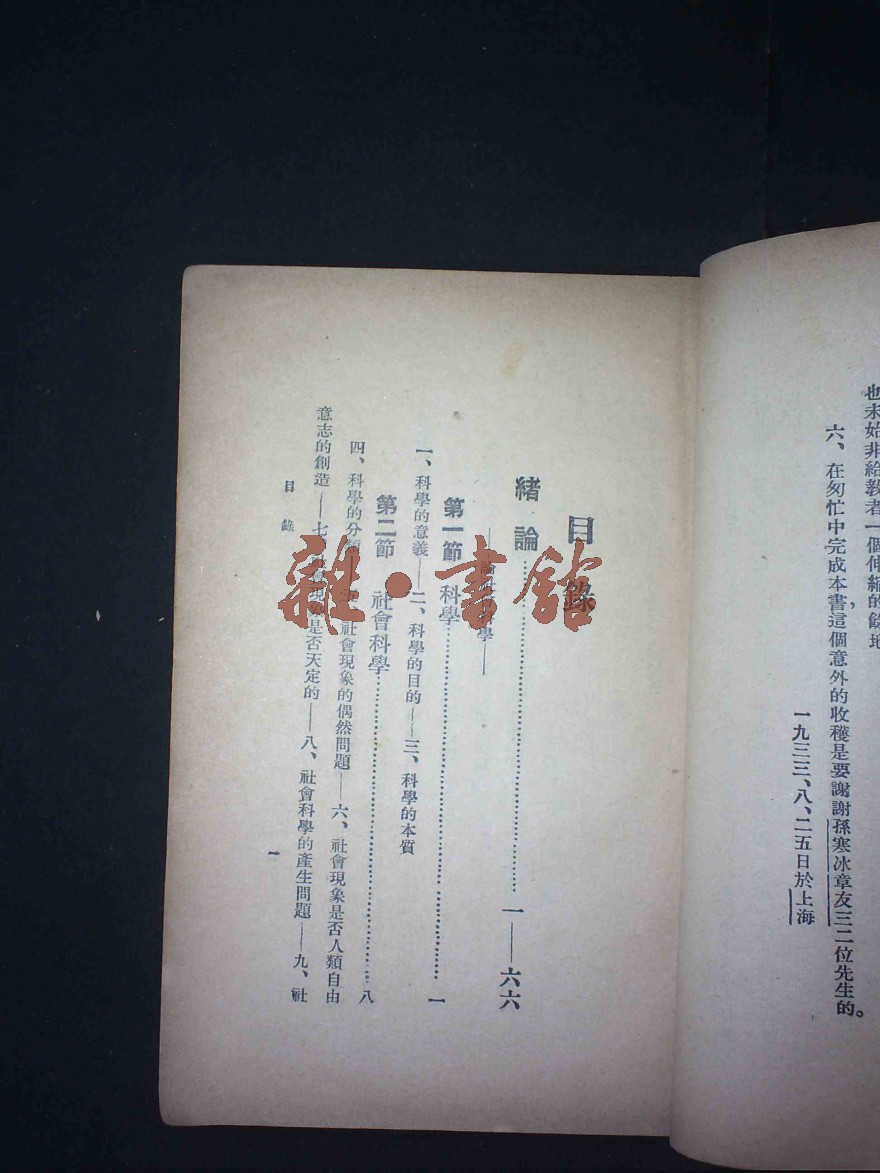 也未始非給教者一個伸縮的餘地
六、在匆忙中完成本書，這個意外的收穫是要謝謝孫寒冰章友三二位先生的。
一九三三、八、二五日於上海
目錄
緒論……一——六六
——論社會科學——
第一節 科學……一
一、科學的意義——二、科學的目的——三、科學的本質
第二節 社會科學……八
四、科學的分類——五、社會現象的偶然問題——六、社會現象是否人類自由
意志的創造——七、社會現象是否天定的——八、社會科學的產生問題——九、社
目錄
一
雜·書館